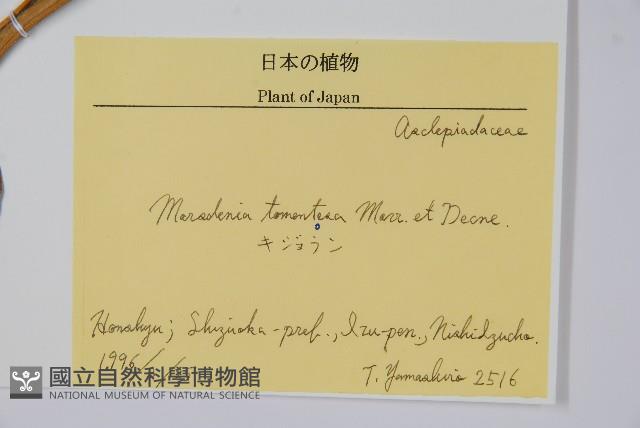 日本の植物
Plant of Japan
Asclepiadaceae
Marsdenia tomentosa Morr. et Decne.
キジョラン
Honshyu; Shizuoka-pref., Izu-pen., Nishiidzucho.
1996/
T. Yamashiro 2516
國立自然科學博物館
NATIONAL MUSEUM OF NATURAL SCIENCE